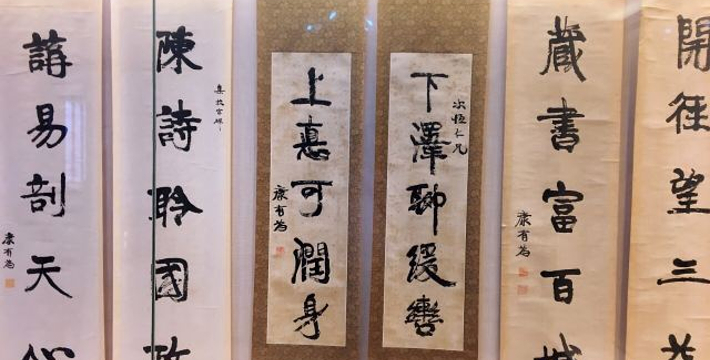 開
望
三
藏書富百城
康有為
次恆仁兄
下澤聊緩轡
上惪可潤身
康有為
陳詩聆國政
講易剖天
康有為